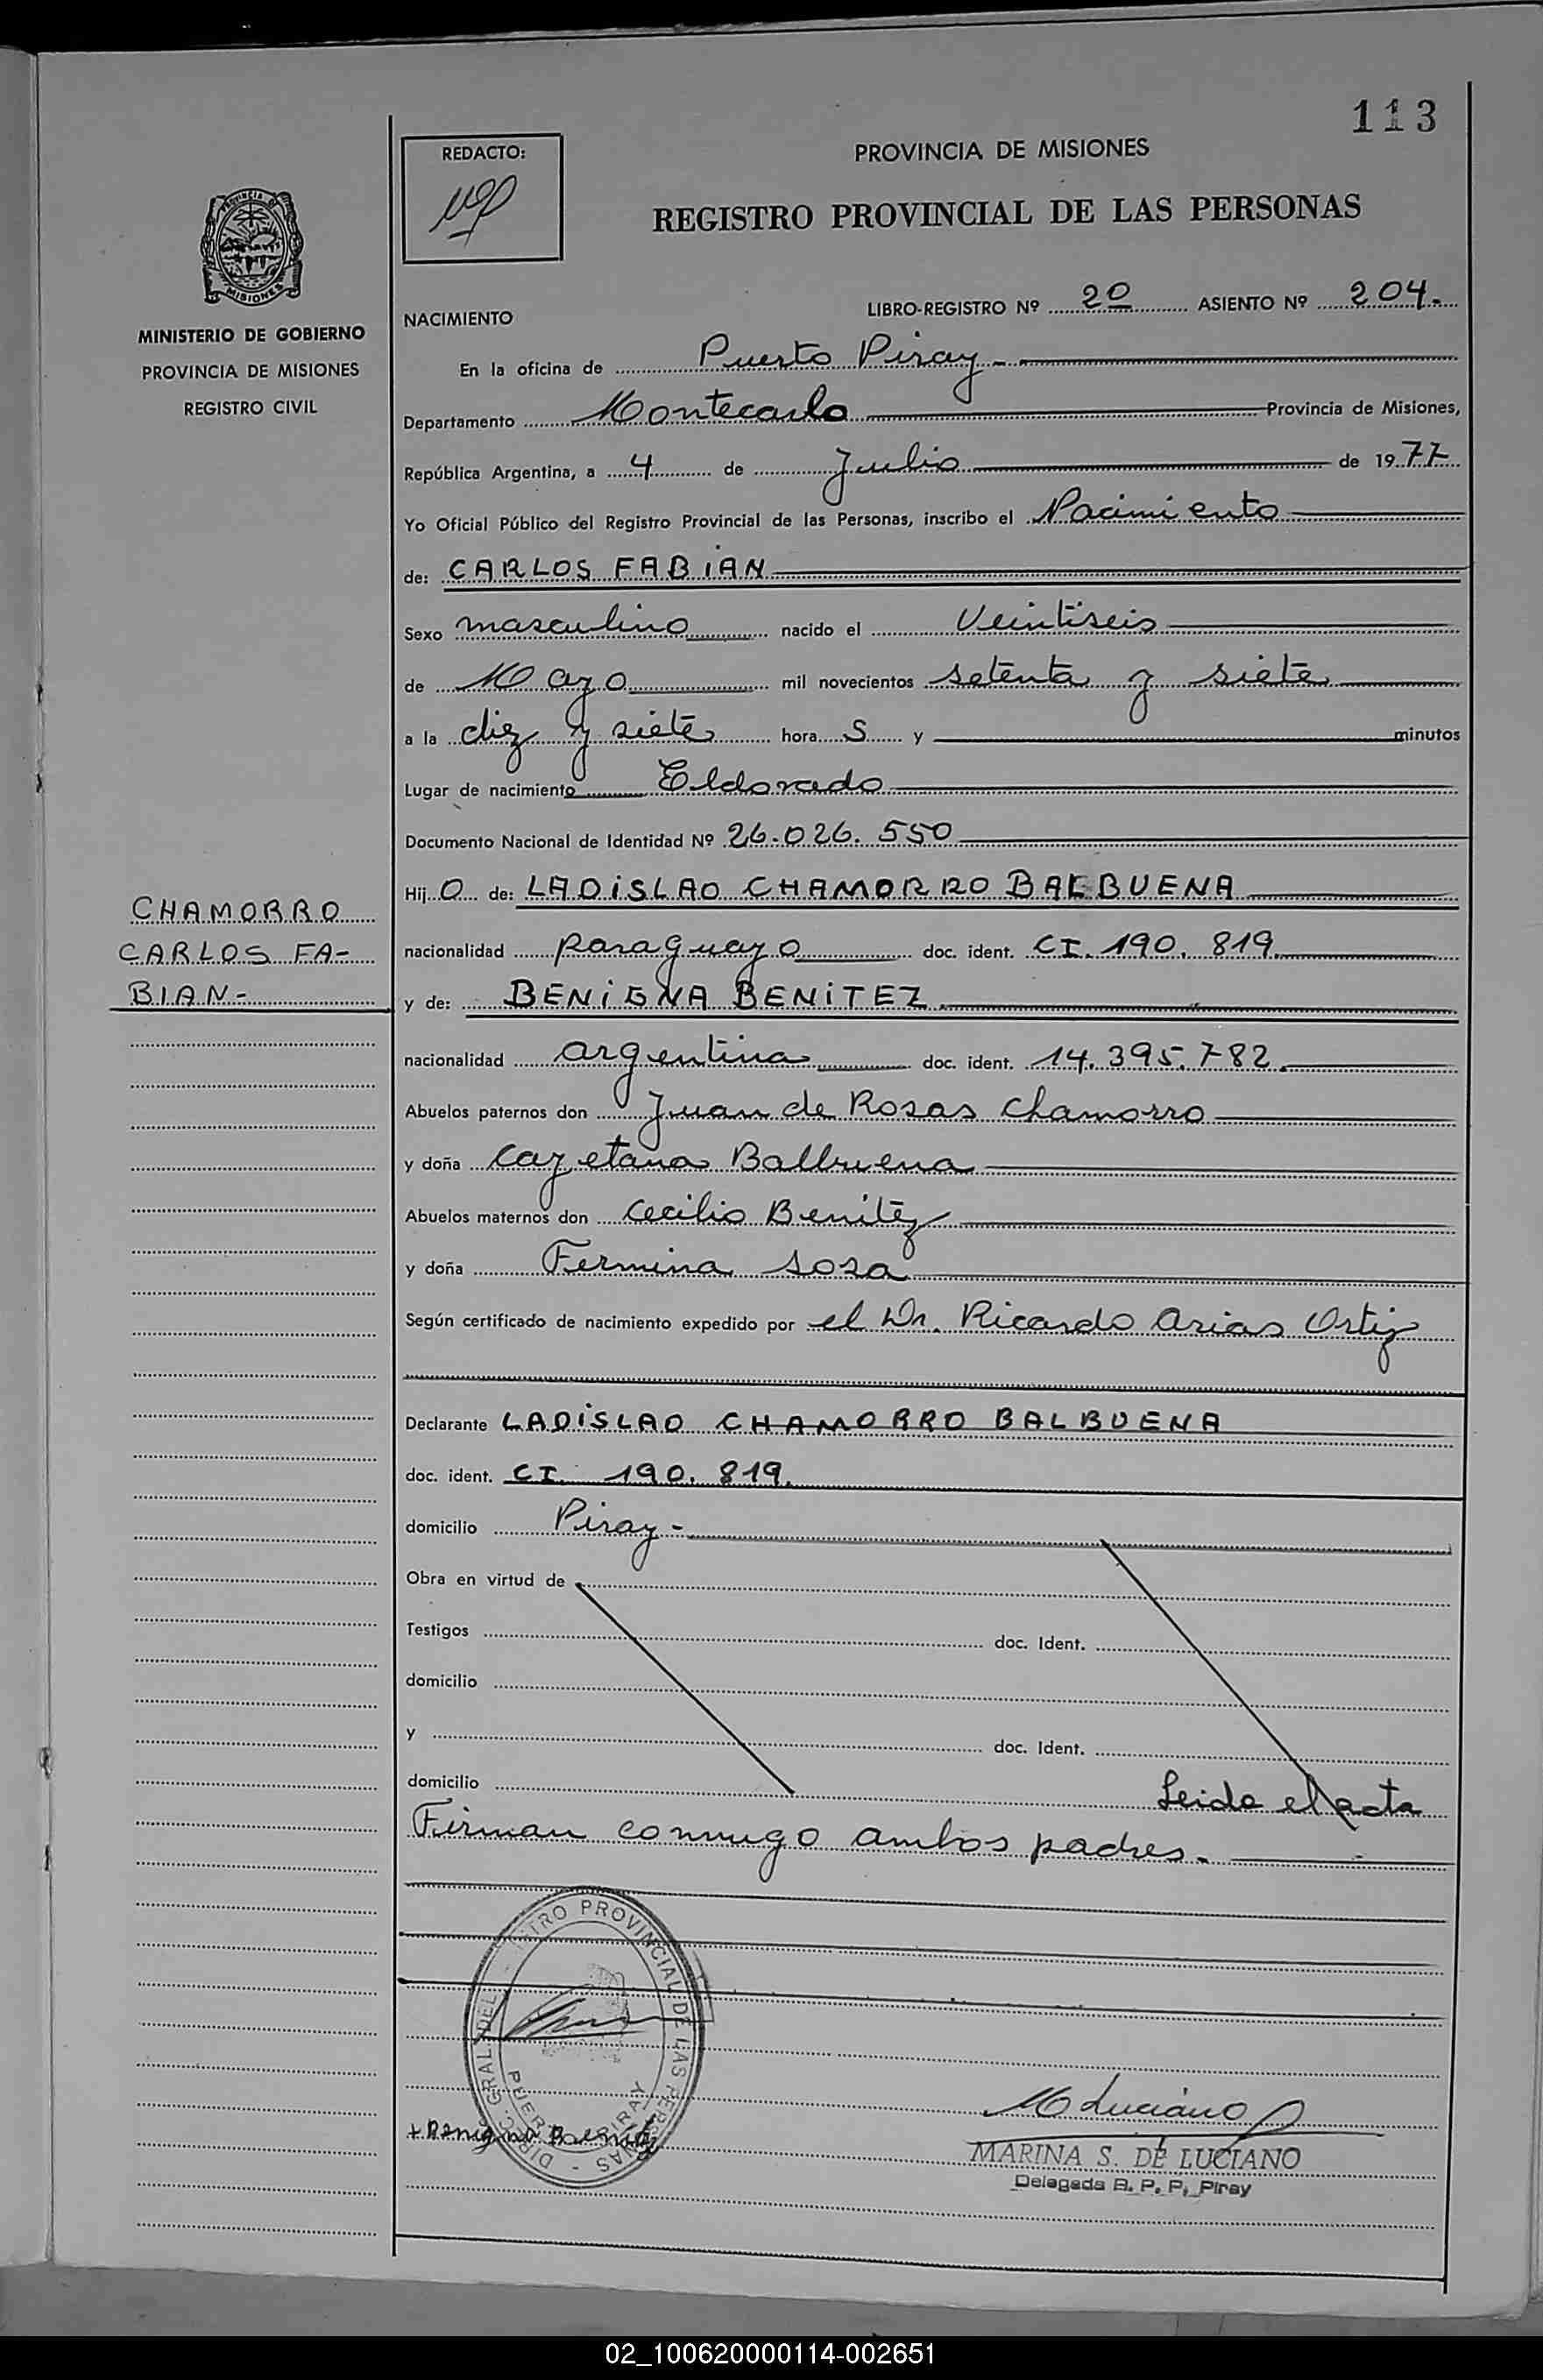 113
REDACTO:
PROVINCIA DE MISIONES
REGISTRO PROVINCIAL DE LAS PERSONAS
PROVINCIA DE MISIONES
MINISTERIO DE GOBIERNO
PROVINCIA DE MISIONES
REGISTRO CIVIL
NACIMIENTO LIBRO-REGISTRO Nº 20 ASIENTO Nº 204.
En la oficina de Puerto Piray -
Departamento Montecarlo Provincia de Misiones,
República Argentina, a 4 de Julio de 1977
Yo Oficial Público del Registro Provincial de las Personas, inscribo el Nacimiento
de: CARLOS FABIAN
Sexo masculino nacido el Veintiseis
de Mayo mil novecientos setenta y siete
a la diez y siete hora s y minutos
Lugar de nacimiento Eldorado
Documento Nacional de Identidad Nº 26.026.550
Hij o de: LADISLAO CHAMORRO BALBUENA
CHAMORRO
CARLOS FA-
BIAN-
nacionalidad paraguayo doc. ident. CI. 190.819.
y de: BENIGNA BENITEZ.
nacionalidad argentina doc. ident. 14.395.782.
Abuelos paternos don Juan de Rosas Chamorro
y doña Cayetana Balbuena
Abuelos maternos don Cecilio Benitez
y doña Fermina Sosa
Según certificado de nacimiento expedido por el Dr. Ricardo Arias Ortiz
Declarante LADISLAO CHAMORRO BALBUENA
doc. ident. CI. 190.819.
domicilio Piray -
Obra en virtud de
Testigos doc. Ident.
domicilio
y doc. Ident.
domicilio Leida el acta
Firman conmigo ambos padres.
DIREC. GRAL. DEL REGISTRO PROVINCIAL DE LAS PERSONAS
PUERTO PIRAY
+ Benigna Benitez
M Luciano
MARINA S. DE LUCIANO
Delegada R. P. P. Piray
02_100620000114-002651